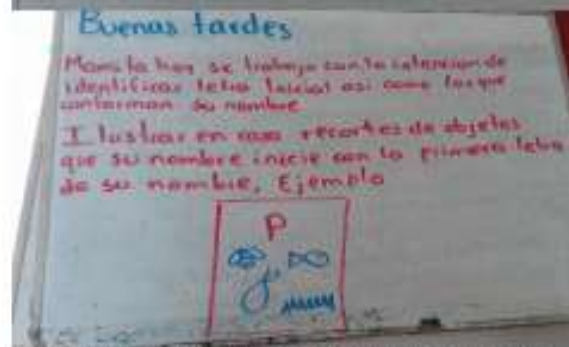 Buenas tardes
Mamita hoy se trabajo con la intencion de
identificar letra inicial asi como las que
conforman su nombre
Ilustrar en casa recortes de objetos
que su nombre inicie con la primera letra
de su nombre, Ejemplo
P